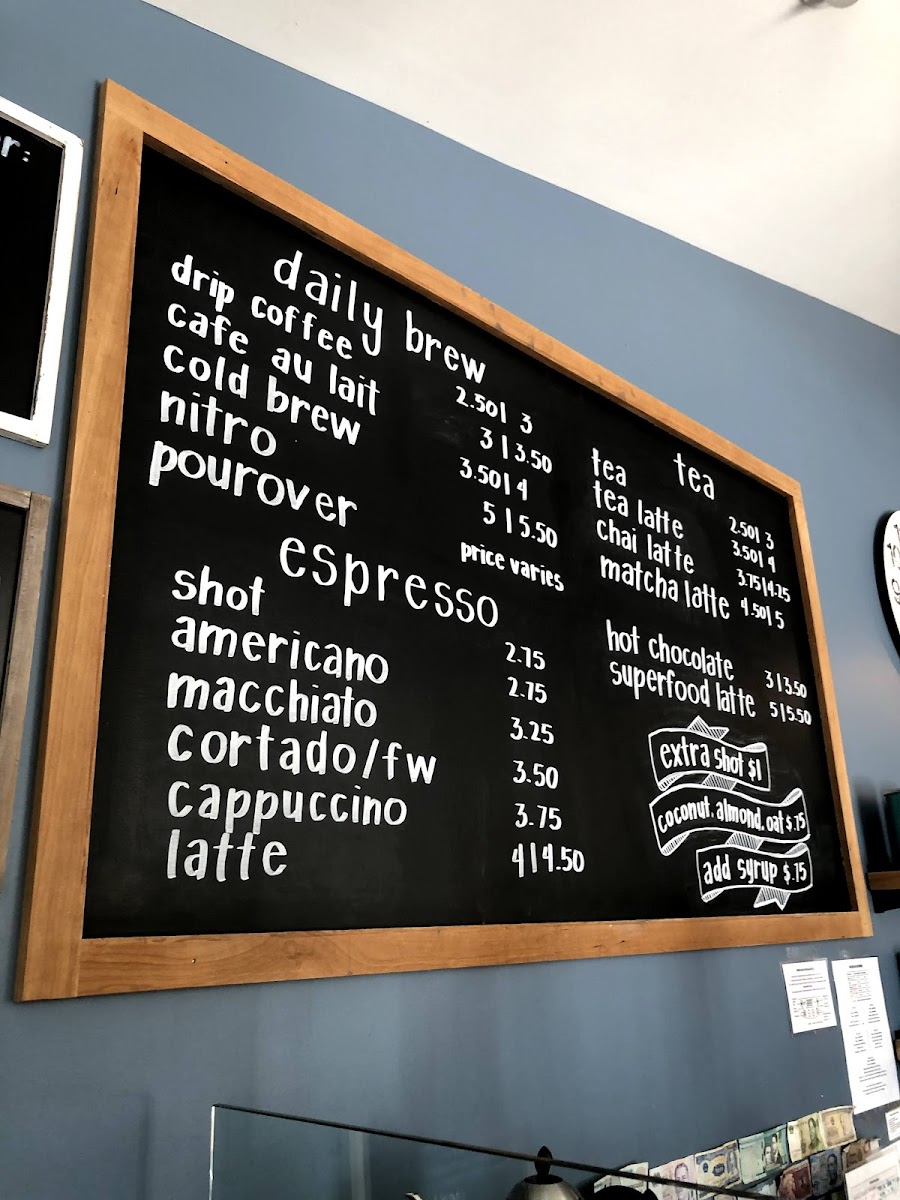 r:
daily brew
drip coffee 2.50 | 3
cafe au lait 3 | 3.50
cold brew 3.50 | 4
nitro 5 | 5.50
pourover price varies
espresso
shot 2.75
americano 2.75
macchiato 3.25
cortado/fw 3.50
cappuccino 3.75
latte 4 | 4.50
tea
tea 2.50 | 3
tea latte 3.50 | 4
chai latte 3.75 | 4.25
matcha latte 4.50 | 5
hot chocolate 3 | 3.50
superfood latte 5 | 5.50
extra shot $1
coconut, almond, oat $.75
add syrup $.75